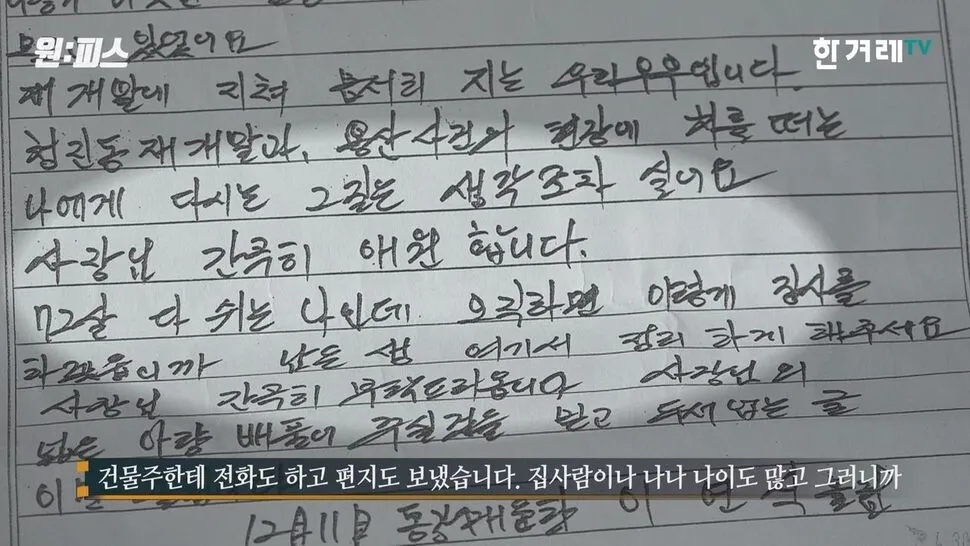 원:피스
한겨레TV
있었어요
재개발에 지쳐 지는 우리
청진동 재개발과, 용산사건의 현장에 치를 떠는
나에게 다시는 그 길은 생각조차 싫어요
사장님 간곡히 애원 합니다.
72살 다 쉬는 나인데 오직하면 이렇게 장사를
하겠읍니까 남은 생 여기서 정리 하게 해주세요
사장님 간곡히 부탁드리옵니다 사장님의
넓은 아량 베풀어 주실 것을 믿고 두서없는 글
이만
건물주한테 전화도 하고 편지도 보냈습니다. 집사람이나 나나 나이도 많고 그러니까
12月 11日 이